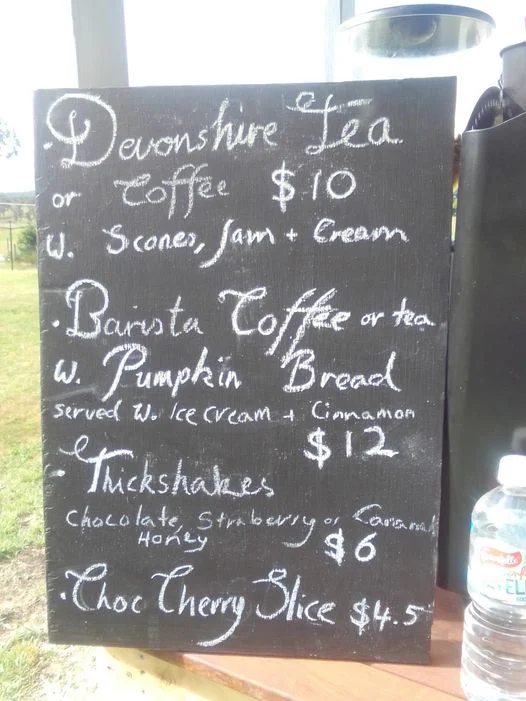 · Devonshire Tea
or Coffee $10
W. Scones, Jam + Cream
· Barista Coffee or tea
W. Pumpkin Bread
served W. Ice cream + Cinnamon
$12
· Thickshakes
Chocolate, Straberry or Caramel
Honey $6
· Choc Cherry Slice $4.5